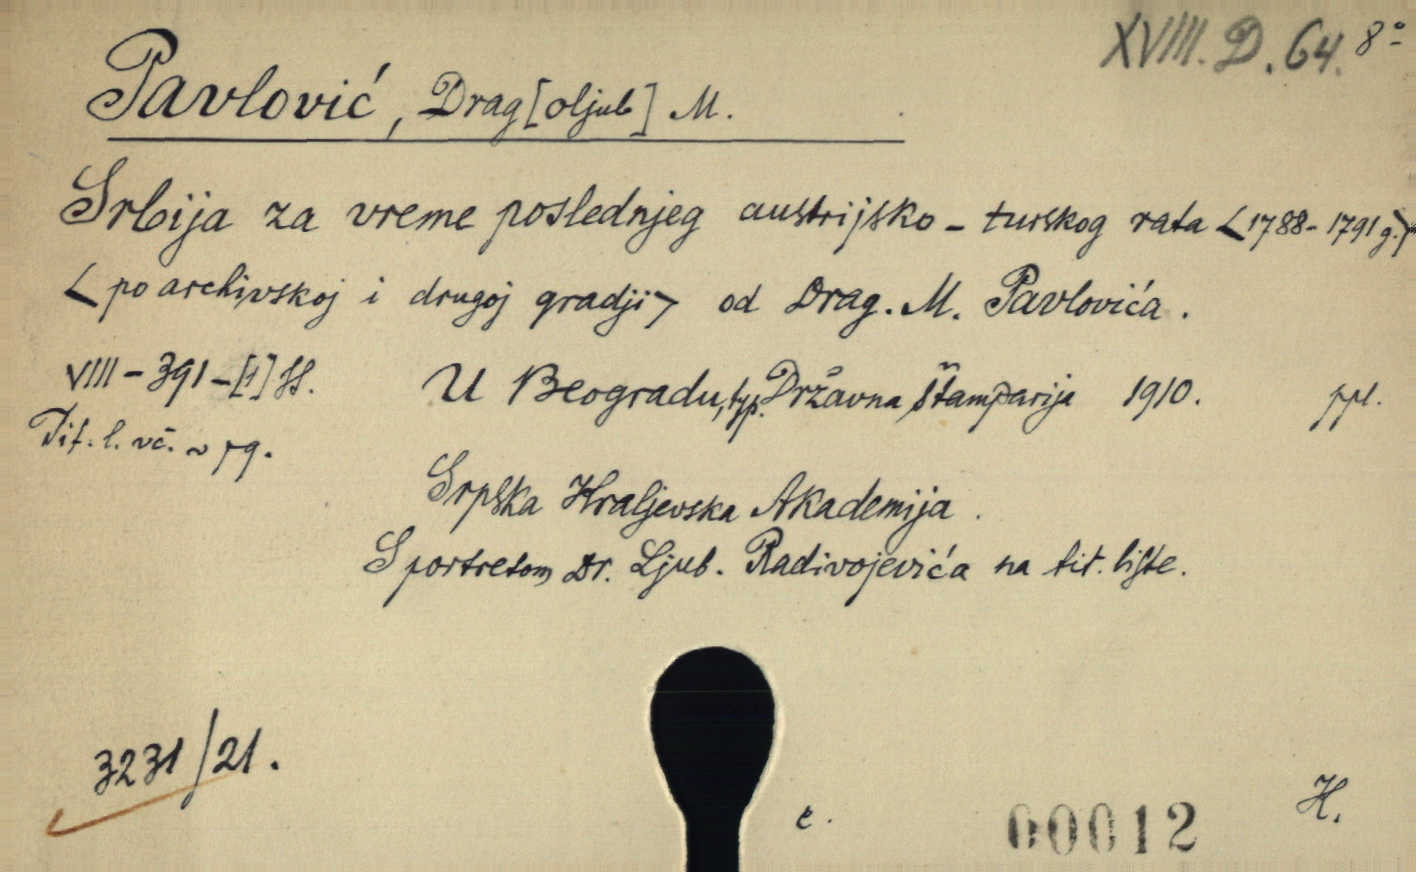 XVIII. D. 64. 8º
Pavlović, Drag[oljub] M.
Srbija za vreme poslednjeg austrijsko - turskog rata <1788-1791 g.>
<po archivskoj i drugoj gradji> od Drag. M. Pavlovića.
VIII - 391 - [1] SS. U Beogradu, typ. Državna štamparija 1910. ppl.
Tit. l. vč.
Srpska Kraljevska Akademija.
S portretom Dr. Ljub. Radivojevića na tit. liste.
3231/21.
e. 00012 H.